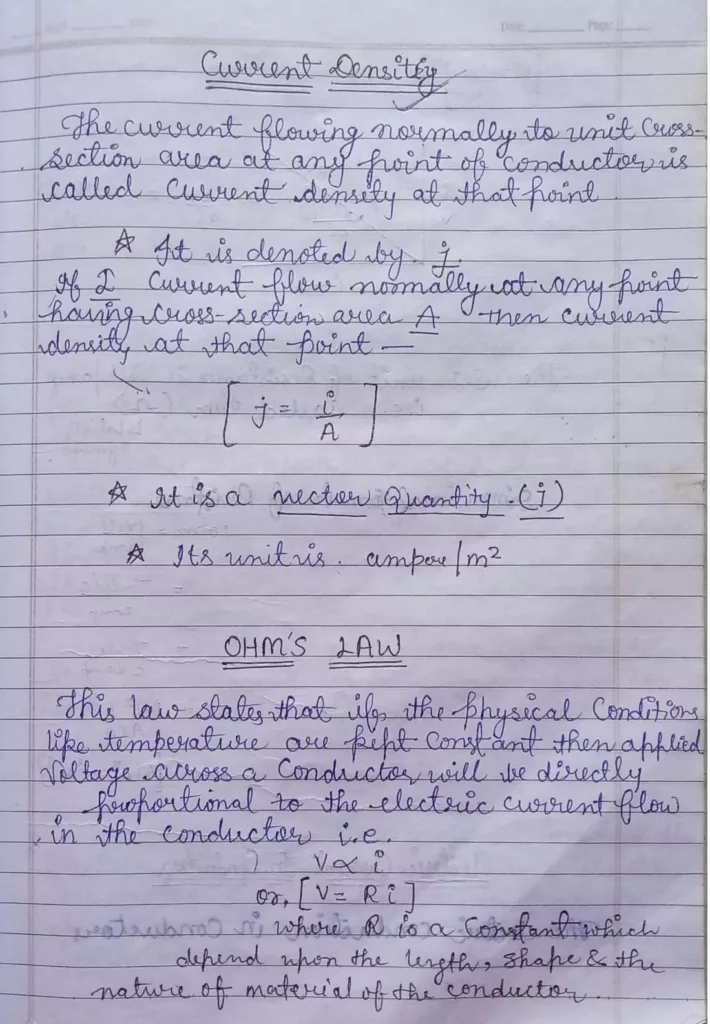 Date: Page:
Current Density
The current flowing normally to unit Cross-
section area at any point of conductor is
called Current density at that point.
☆ It is denoted by j.
If I Current flow normally at any point
having cross-section area A then current
density at that point —
[ j = i/A ]
☆ It is a vector Quantity. (j)
☆ Its unit is. ampere/m²
OHM'S LAW
This law states that if the physical Conditions
like temperature are kept Constant then applied
Voltage across a Conductor will be directly
proportional to the electric current flow
in the conductor i.e.
V∝ i
or, [V= Ri]
where R is a Constant which
depend upon the length, shape & the
nature of material of the conductor.